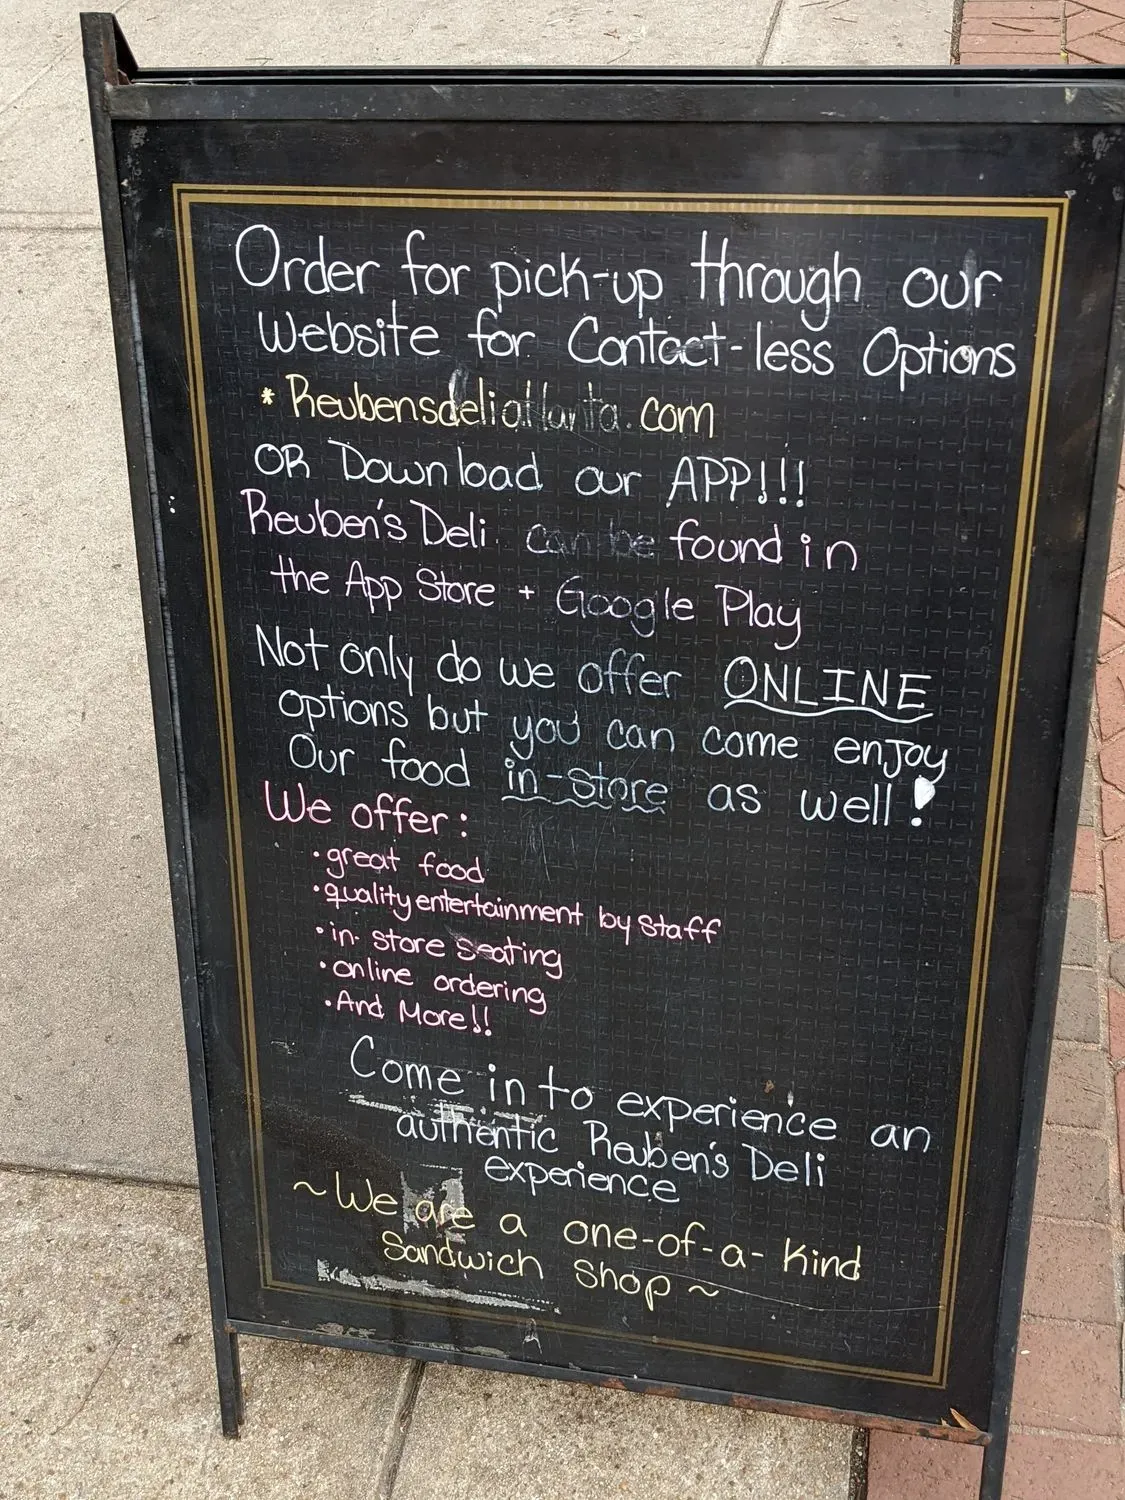 Order for pick-up through our
Website for Contact-less Options
* Reubensdeliatlanta.com
OR Download our APP!!!
Reuben's Deli can be found in
the App Store + Google Play
Not only do we offer ONLINE
options but you can come enjoy
Our food in-store as well!
We offer:
• great food
• quality entertainment by staff
• in-store seating
• online ordering
• And More!!
Come in to experience an
authentic Reuben's Deli
experience
~ We are a one-of-a-kind
Sandwich Shop ~